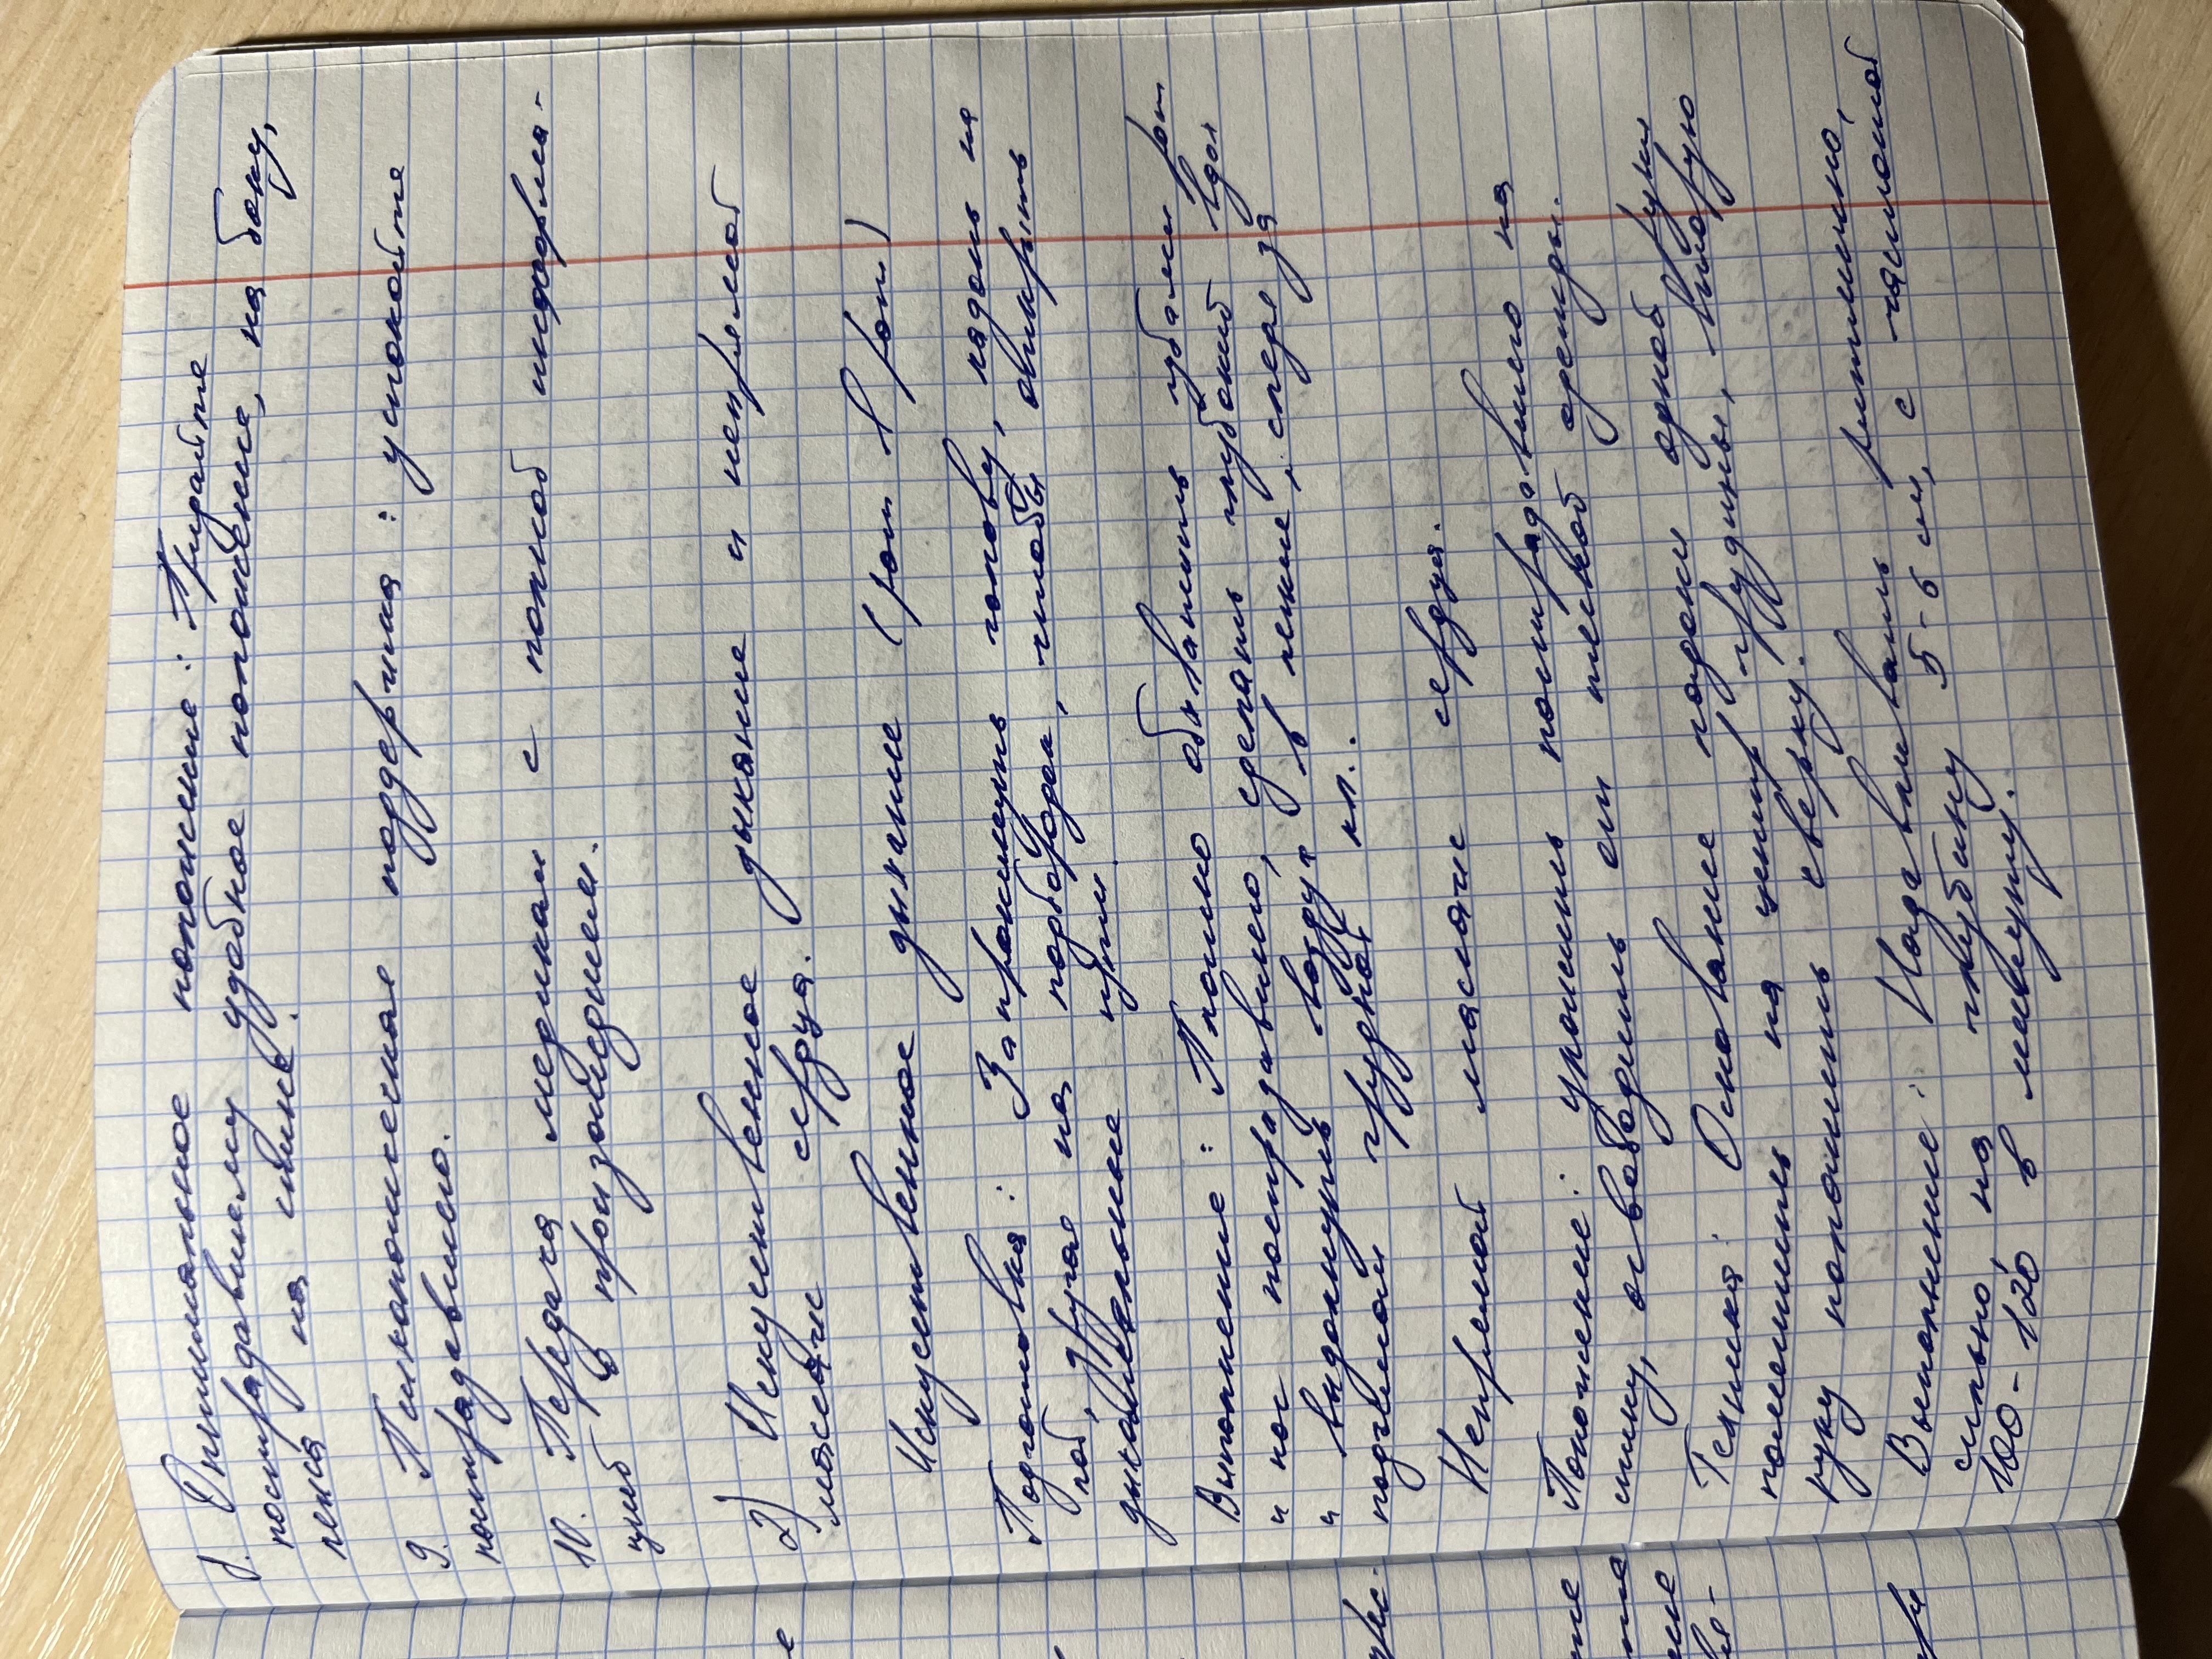 8. Оптимальное положение: Придайте
пострадавшему удобное положение, на боку,
лежа на спине.
9. Психологическая поддержка: успокойте
пострадавшего.
10. Передача медикам с полной информа-
цией о произошедшем.
2) Искуственное дыхание и непрямой
массаж сердца.
Искуственное дыхание (рот в рот)
Подготовка: Запрокинуть голову, ладонь на
лоб, другую на подбородок, чтобы открыть
дыхательные пути.
Выполнение: Плотно обхватить губами рот
и нос пострадавшего, сделать глубокий вдох
и выдохнуть воздух в легкие, следя за
подъемом грудной кл.
Непрямой массаж сердца.
Положение: уложить пострадавшего на
спину, освободить от тесной одежды.
Техника: Основание ладони одной руки
поместить на центр грудины, вторую
руку положить сверху.
Выполнение: Надавливать ритмично,
сильно, на глубину 5-6 см, с частотой
100-120 в минуту.